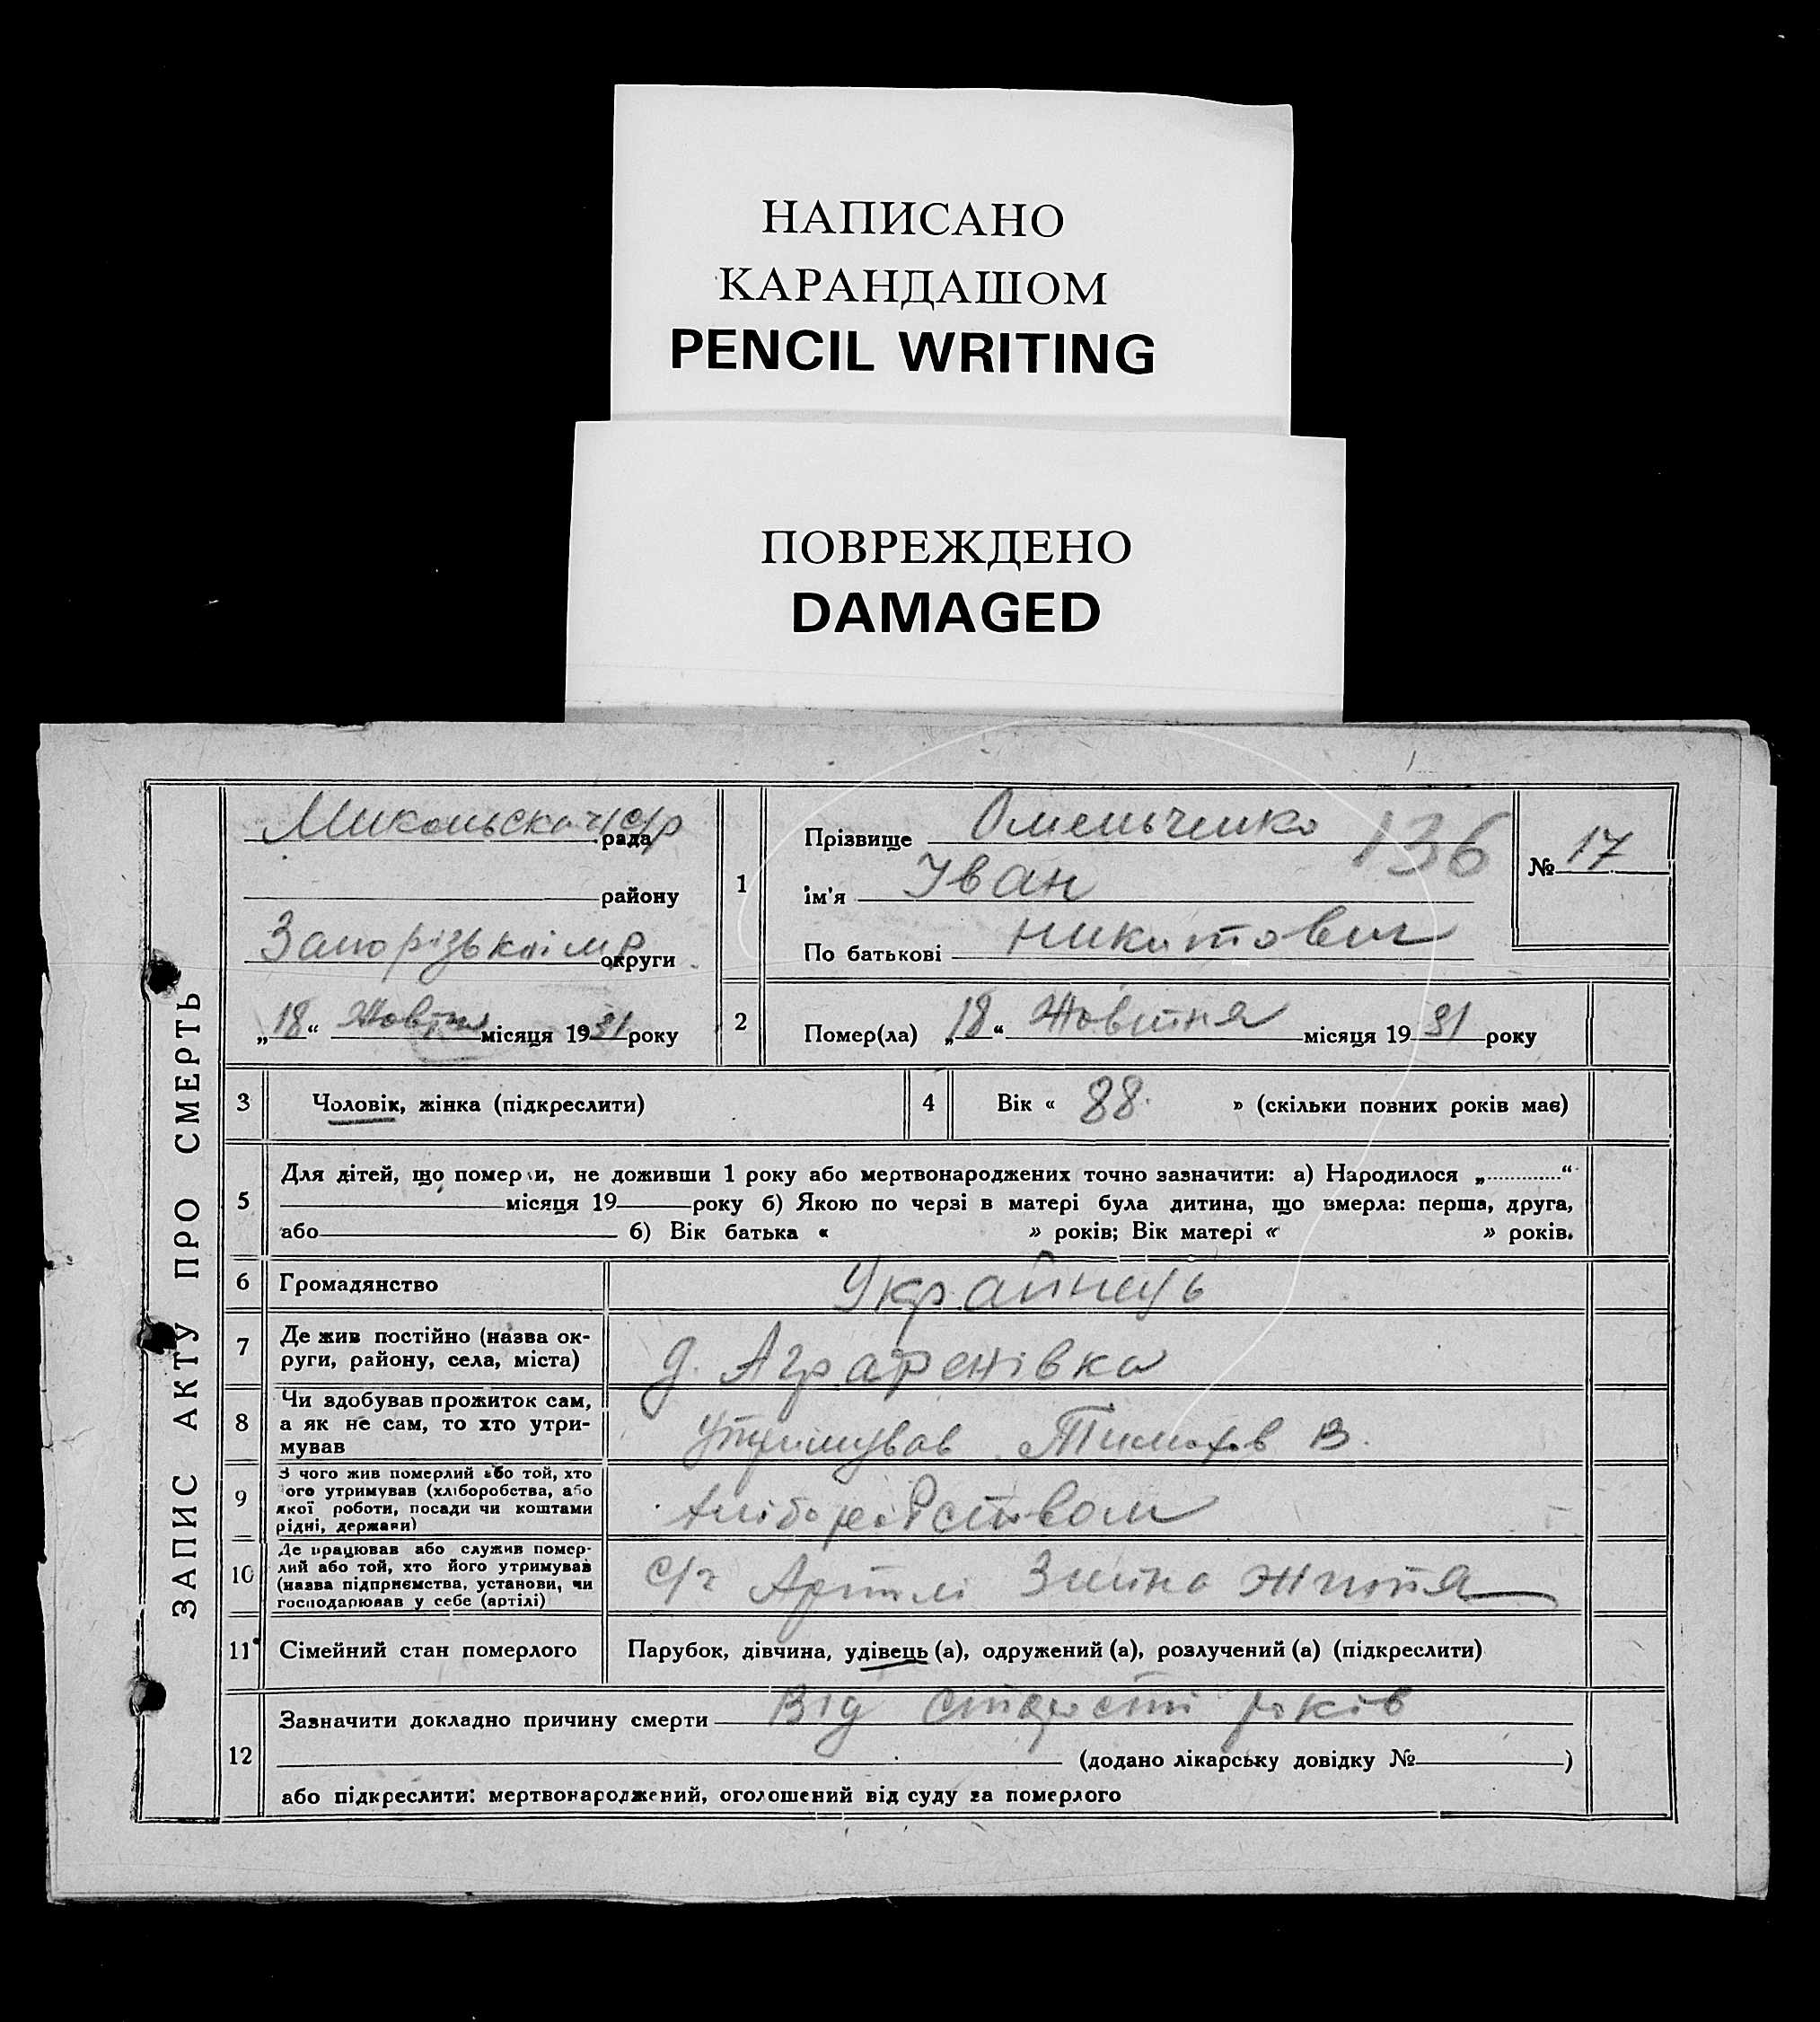 НАПИСАНО
КАРАНДАШОМ
PENCIL WRITING
ПОВРЕЖДЕНО
DAMAGED
ЗАПИС АКТУ ПРО СМЕРТЬ
Микольска с/р рада
району
Запорізької м р округи
„18“ Жовтн місяця 1931 року
1
Прізвище Омельченко
136
ім'я Іван
По батькові Никитович
№ 17
2
Помер(ла) „18“ Жовтня місяця 1931 року
3
Чоловік, жінка (підкреслити)
4
Вік « 88 » (скільки повних років має)
5
Для дітей, що померли, не доживши 1 року або мертвонароджених точно зазначити: а) Народилося „............“
місяця 19 року б) Якою по черзі в матері була дитина, що вмерла: перша, друга,
або б) Вік батька « » років; Вік матері « » років.
6
Громадянство
Украинець
7
Де жив постійно (назва ок-
руги, району, села, міста)
д. Аграфенівка
8
Чи здобував прожиток сам,
а як не сам, то хто утри-
мував
Утримував В.
9
З чого жив померлий або той, хто
ого утримував (хліборобства, або
якої роботи, посади чи коштами
рідні, держави)
хліборобством
10
Де працював або служив помер-
лий або той, хто його утримував
(назва підприємства, установи, чи
господарював у себе (артілі)
с/г Артілі Життя
11
Сімейний стан померлого
Парубок, дівчина, удівець (а), одружений (а), розлучений (а) (підкреслити)
12
Зазначити докладно причину смерти Від старости років
(додано лікарську довідку № )
або підкреслити: мертвонароджений, оголошений від суду за померлого